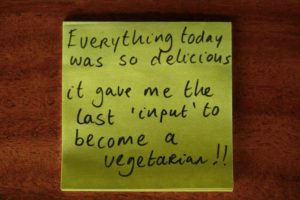 Everything today
was so delicious
it gave me the
last 'input' to
become a
vegetarian!!